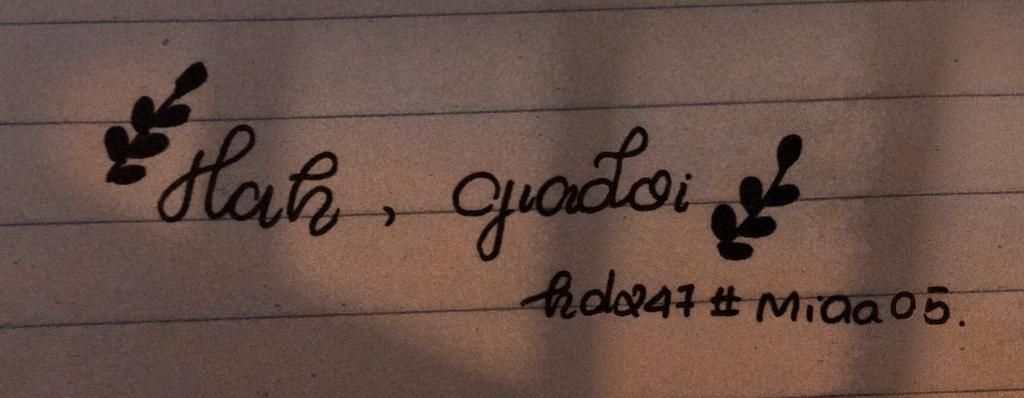 Hah, quadoi
hda247 # Miaa05.